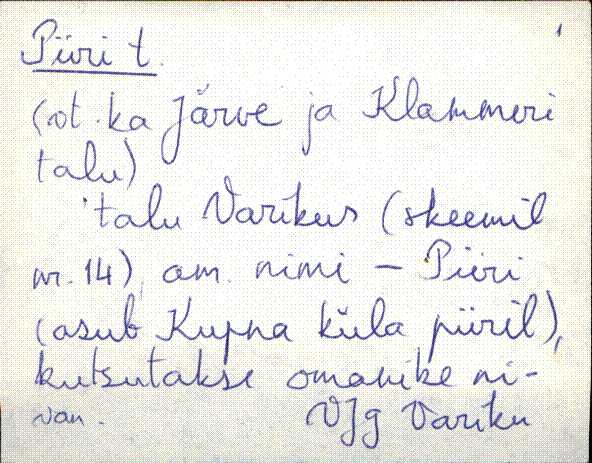 1
Piiri t.
(vt. ka Järve ja Klammeri
talu)
talu Varikus (skeemil
nr. 14), am. nimi – Piiri
(asub Kupna küla piiril),
kutsutakse omanike ni-
van.
VJg Variku